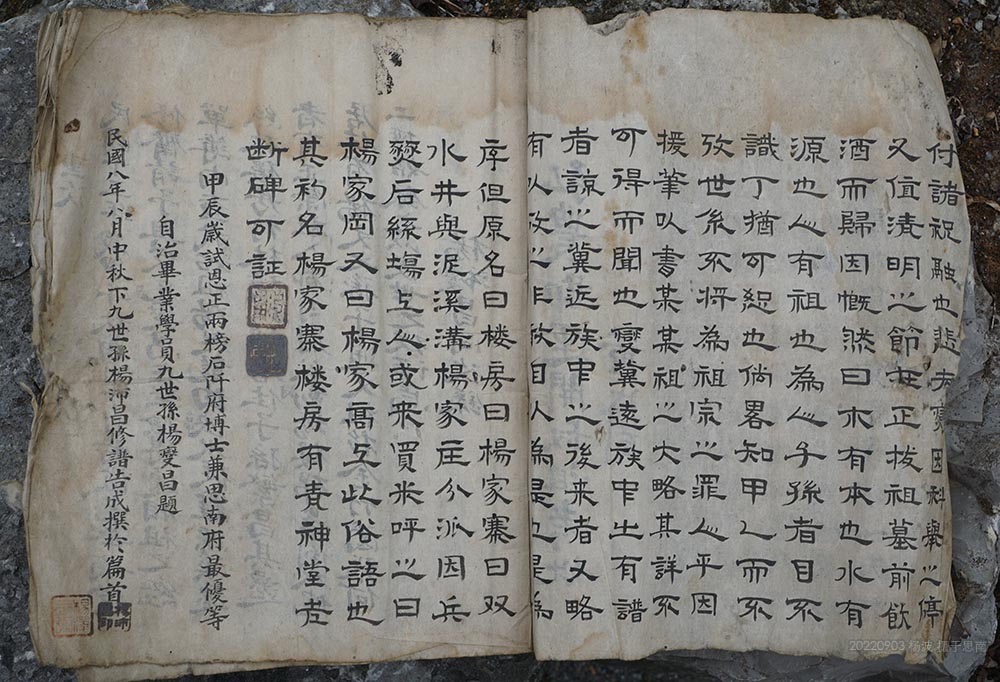 付諸祝融也悲夫夔因科舉之停
又值清明之節在正拔祖墓前飲
酒而歸因慨然曰木有本也水有
源也人有祖也為人子孫者目不
識丁猶可恕也倘畧知甲乙而不
攷世系不將為祖宗之罪人乎因
援筆以書某某祖之大略其詳不
可得而聞也夔冀遠族中出有譜
者諒之冀近族中之後来者又略
有以攷之非敢自以為是也是為
序但原名曰楼房曰楊家寨曰双
水井與泥溪溝楊家庄分派因兵
燹后絲塲上人或来買米呼之曰
楊家岡又曰楊家高上此俗語也
其名楊家寨楼房有青神堂岩
断碑可証
甲辰歲試恩正兩榜石阡府博士兼思南府最優等
自治畢業學員九世孫楊夔昌題
民國八年八月中秋下九世孫楊沛昌修譜告成撰於篇首
20220903 杨波 摄于思南